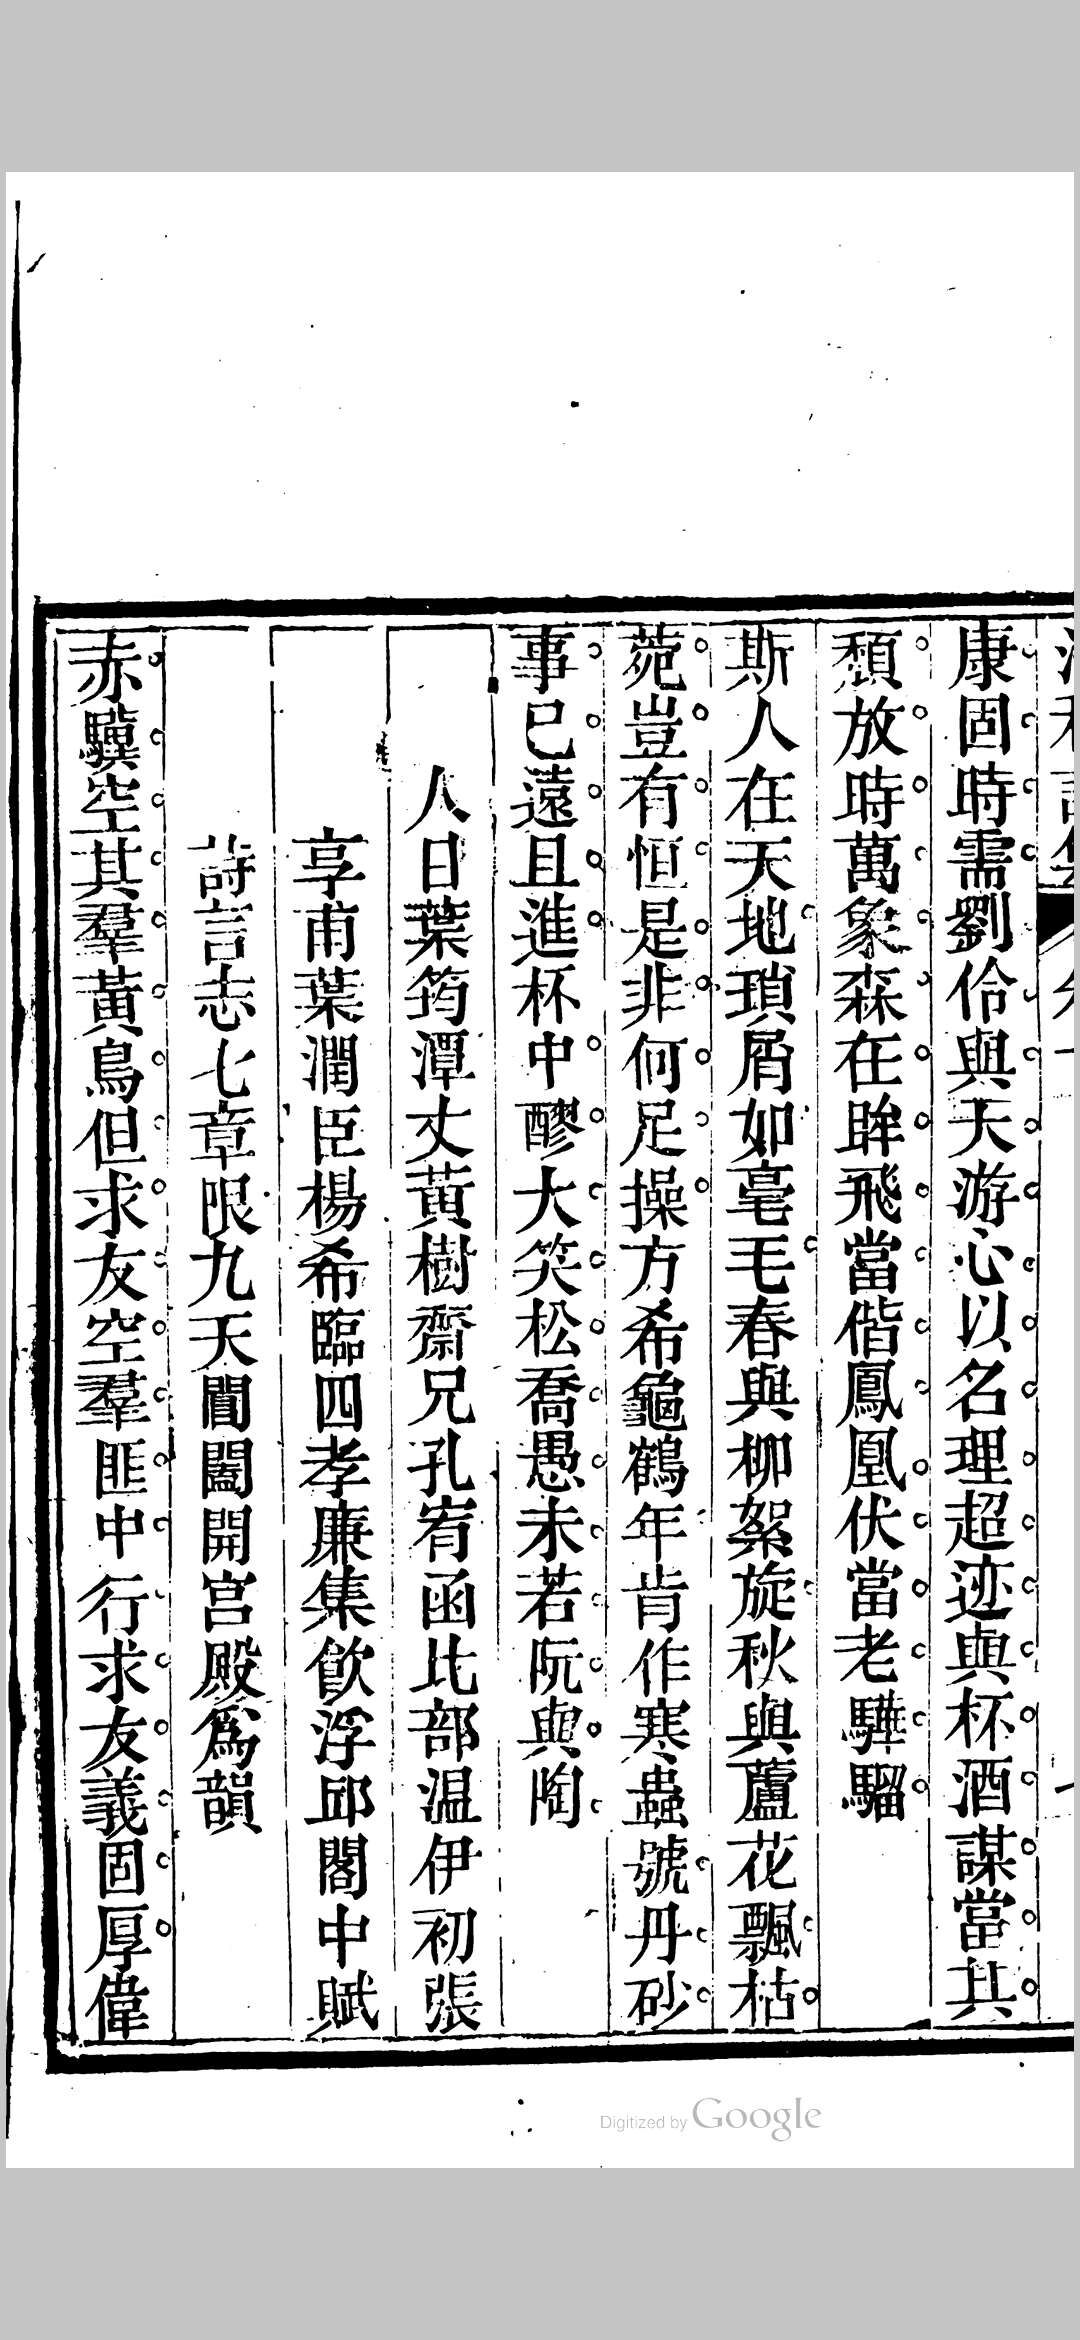 康固時需劉伶與天游心以名理超迹與杯酒謀當其
頹放時萬象森在眸飛當偕鳳凰伏當老驊騮
斯人在天地瑣屑如毫毛春與柳絮旋秋與蘆花飄枯
菀豈有恒是非何足操方希龜鶴年肯作寒蟲號丹砂
事已遠且進杯中醪大笑松喬愚未若阮與陶
人日葉筠潭丈黃樹齋兄孔宥函比部温伊初張
享甫葉潤臣楊希臨四孝廉集飲浮邱閣中賦
詩言志七章限九天閶闔開宫殿爲韻
赤驥空其羣黃鳥但求友空羣匪中行求友義固厚偉
Digitized by Google